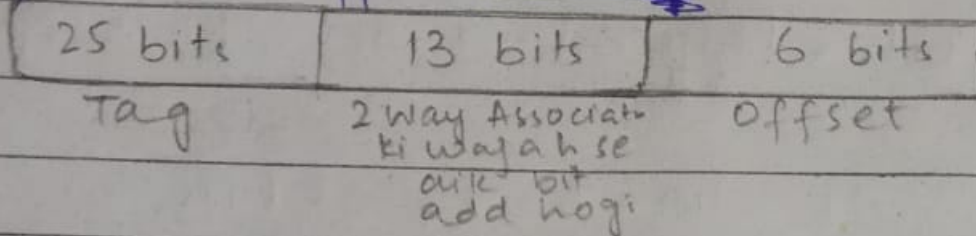 25 bits 13 bits 6 bits
Tag 2 way Associatv offset
ki wajah se
aik bit
add hogi